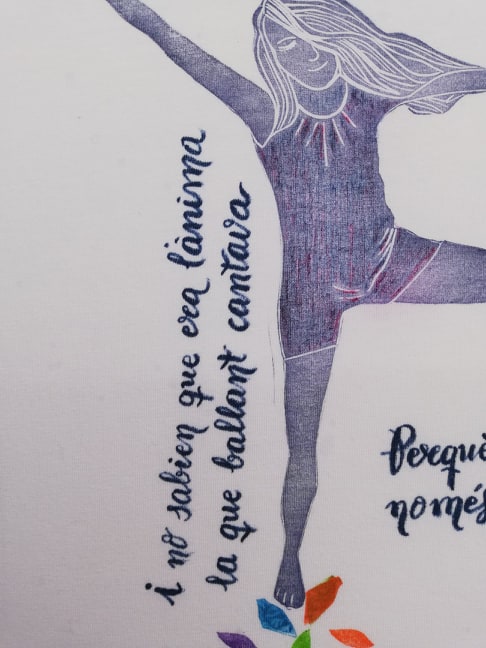 i no sabien que era l'ànima
la que ballant cantava
Perquè
només